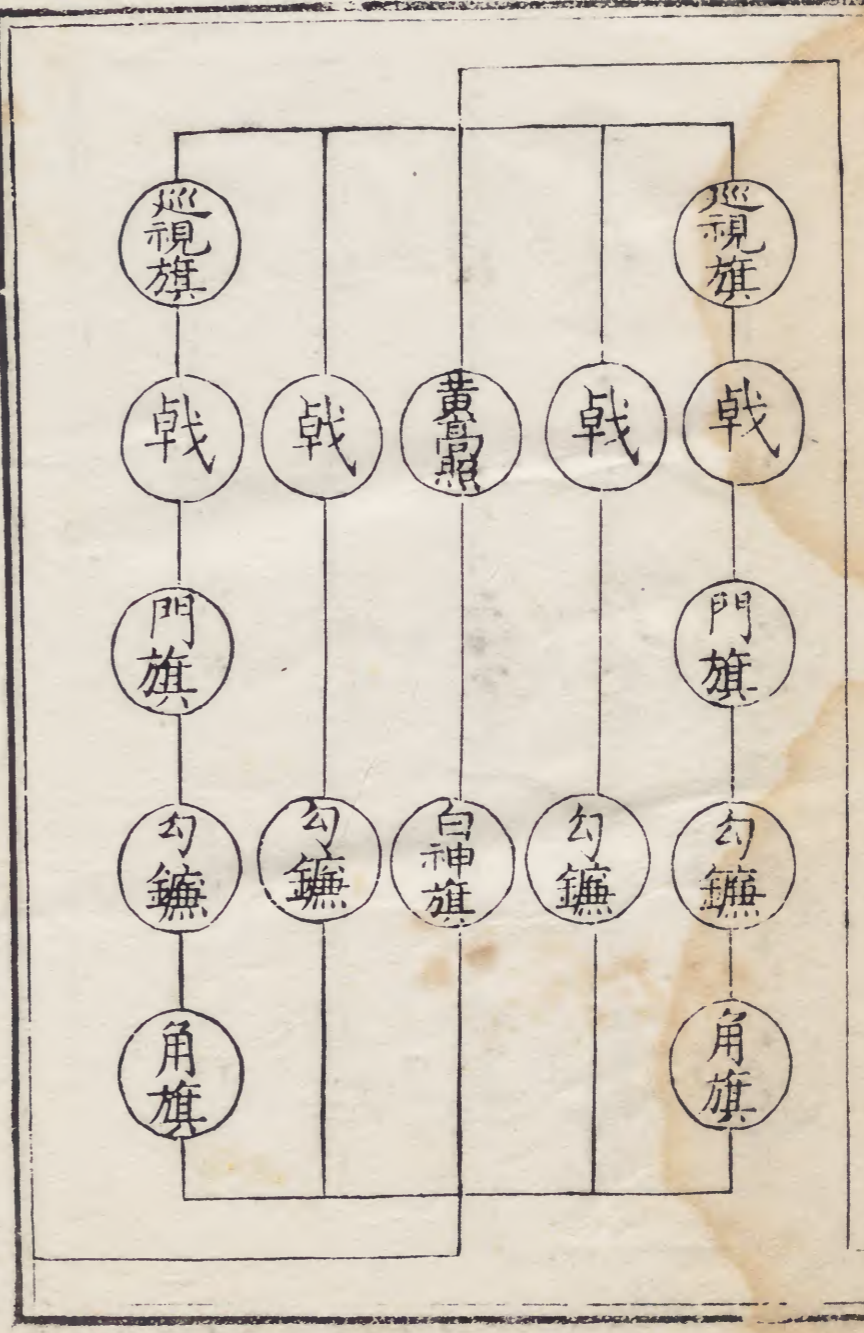 巡視旗
戟
門旗
勾鐮
角旗
戟
勾鐮
黃高照
白神旗
戟
勾鐮
巡視旗
戟
門旗
勾鐮
角旗